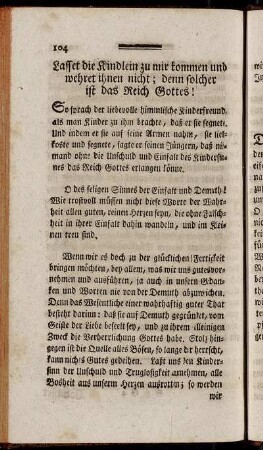 104
Lasset die Kindlein zu mir kommen und
wehret ihnen nicht; denn solcher
ist das Reich Gottes!
So sprach der liebevolle himmlische Kinderfreund,
als man Kinder zu ihm brachte, das er sie segnet.
Und indem er sie auf seine Armen nahm, sie lieb-
koste und segnete, sagte er seinen Jüngern, daß nie-
mand ohne die Unschuld und Einfalt des Kindersin-
nes das Reich Gottes erlangen könne.
O des seligen Sinnes der Einfalt und Demuth!
Wie trostvoll müssen nicht diese Worte der Wahr-
heit allen guten, reinen Herzen seyn, die ohne Falsch-
heit in ihrer Einfalt dahin wandeln, und im Klei-
nen treu sind.
Wenn wir es doch zu der glücklichen Fertigkeit
bringen möchten, bey allem, was wir uns gutes vor-
nehmen und ausführen, ja auch in unsern Gedan-
ken und Worten nie von der Demuth abzuwichen.
Denn das Wesentliche einer wahrhaftig guten That
besteht darinn: daß sie auf Demuth gegründet, vom
Geiste der Liebe beseelt sey, und zu ihrem alleinigen
Zweck die Verherrlichung Gottes habe. Stolz hin-
gegen ist die Quelle alles Bösen, so lange dr herrscht,
kann nichts Gutes gedeihen. Laßt uns den Kinder-
sinn der Unschuld und Truglosigkeit annehmen, alle
Bosheit aus unserm Herzen ausrotten; so werden
wir